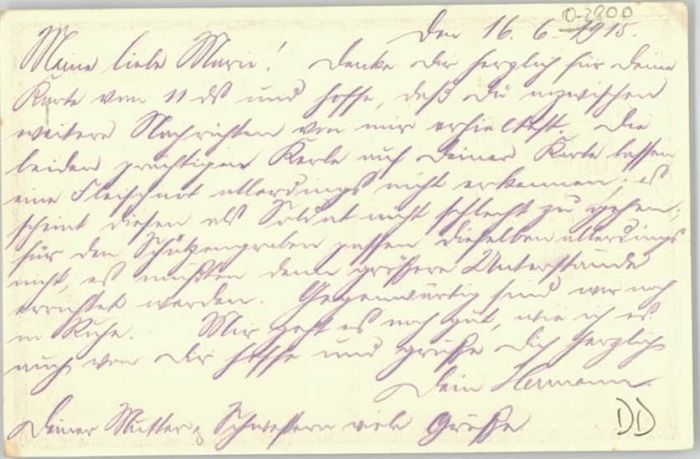 O-2800
Den 16. 6. 1915.
Meine liebe Marie! Danke Dir herzlich für Deine
Karte vom 11 ds und hoffe, daß Du inzwischen
weitere Nachrichten von mir erhieltest. Die
beiden prächtigen Kerle auf Deiner Karte lassen
eine Fleischnot allerdings nicht erkennen, es
scheint diesen als Soldat nicht schlecht zu gehen,
für den Schützengraben passen dieselben allerdings
nicht, es müßten denn größere Unterstände
errichtet werden. Gegenwärtig sind wir noch
in Ruhe. Mir geht es noch gut, wie ich es
auch von Dir hoffe und grüße Dich herzlich
Dein Hermann.
Deiner Mutter & Schwestern viele Grüße
DD